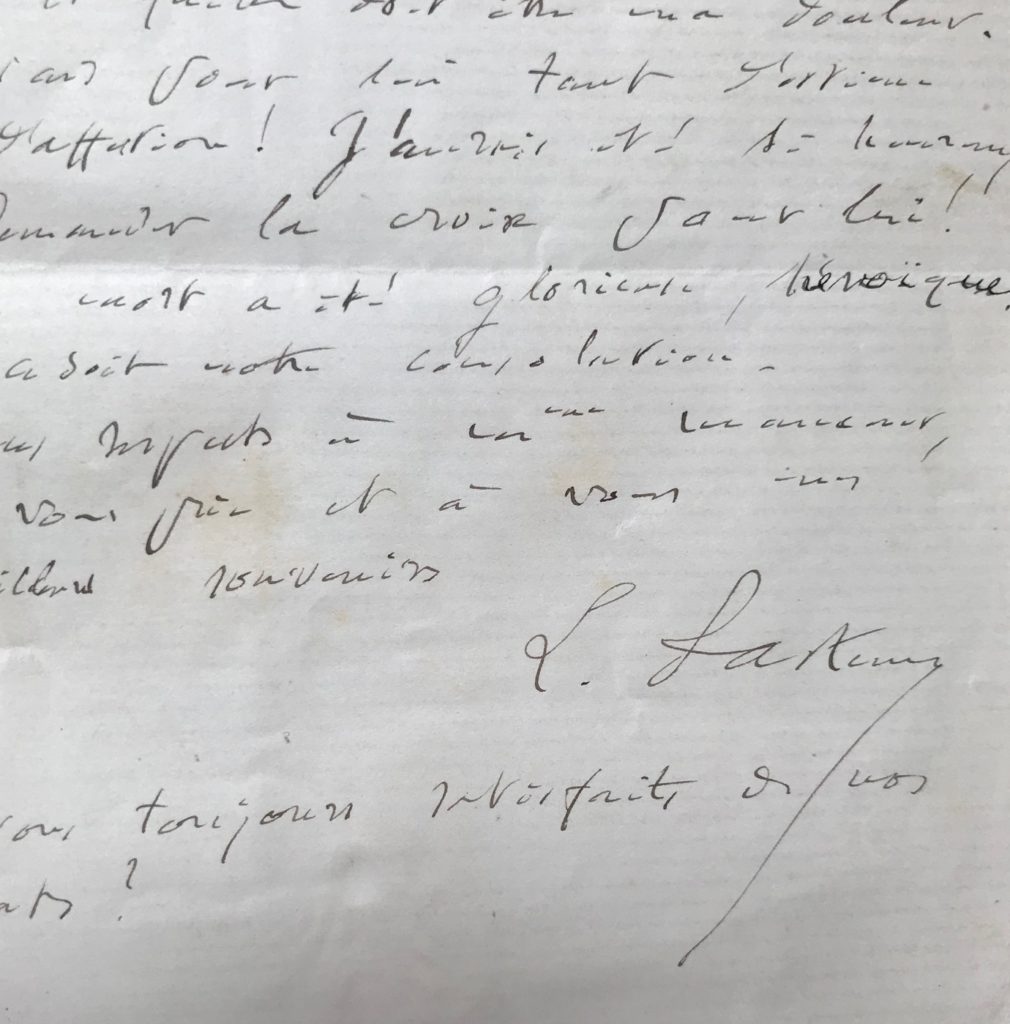 quelle doit être ma douleur.
pour lui tant d'estime
d'affection! J'aurais été si heureux
demander la croix pour lui!
mort a été glorieuse, héroïque.
soit notre consolation.
respects à maman,
vous prie et à vous mes
souvenirs
L.
vous toujours satisfaits de vos
?